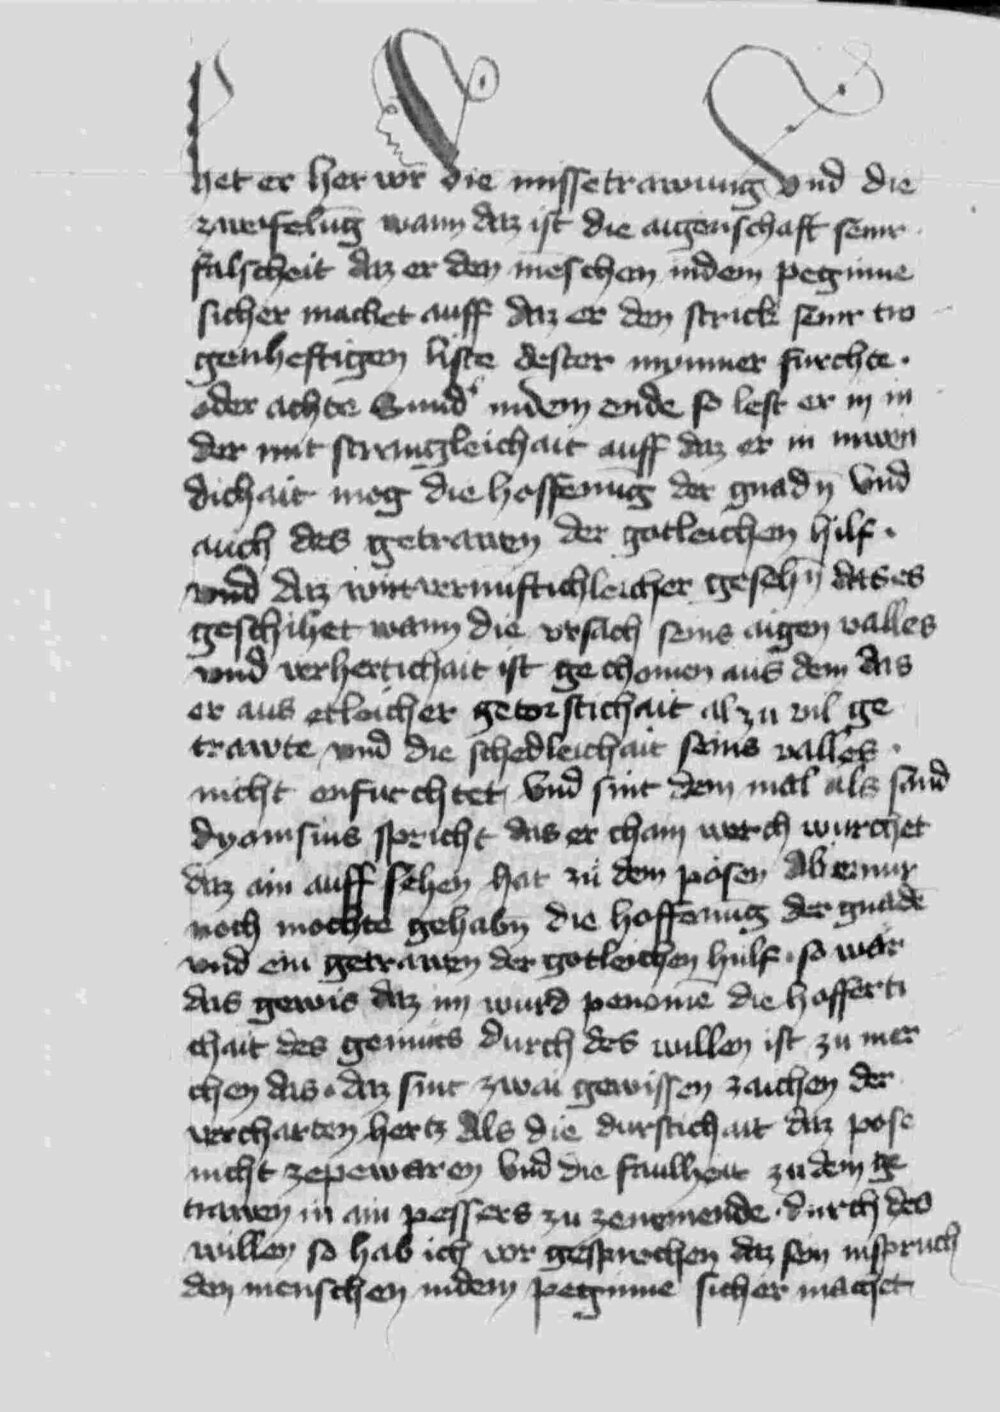 het er her wr die missetrawung vnd die
zweifelūg wann daz ist die aigenschaft seinr
falscheit daz er den mēschen indem peginne
sicher machet auff daz er den strick seinr tro
genheftigen liste dester mynner furchte .
oder achte Sunder indem ende so lest er in in
der mit strangleichait auff daz er in inwen
dichait mog die hoffenūg der gnadn̄ vnd
auch des getrawen der gotleichen hilf .
vnd daz wirt vernuftichleicher gesehn̄ das es
geschihet wann die vrsach seins aigen valles
vnd verhertichait ist gechomen aus dem das
er aus etleicher getorstichait al zu vil ge
trawte vnd die schedleichait seins valles .
nicht enfurchtet Vnd sint dem mal als sand
dyonisius spricht das er chain werch wurchet
daz ain auff sehen hat zu dem posen Ab er nur
noch mochte gehabn̄ die hoffenūg der gnadē
vnd ein getrawen der gotleichen hulf . so wār
das gewis daz im wurd penomē die hofferti
chait des gemuts durch des willen ist zu mer
chen das . daz sint zwai gewissen zaichen der
vercharten hertz Als die durstichait daz pose
nicht zepewaren Vnd die faulheit zu dem ge
trawen in ain pessers zu zenemende . durch des
willen so hab ich vor gesprochen daz sein inspruch
den menschen indem peginne sicher machet